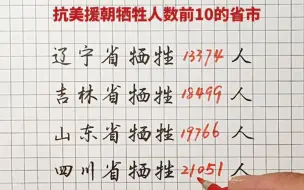 抗美援朝牺牲人数前10的省市
辽宁省牺牲13374人
吉林省牺牲18499人
山东省牺牲19766人
四川省牺牲21051人